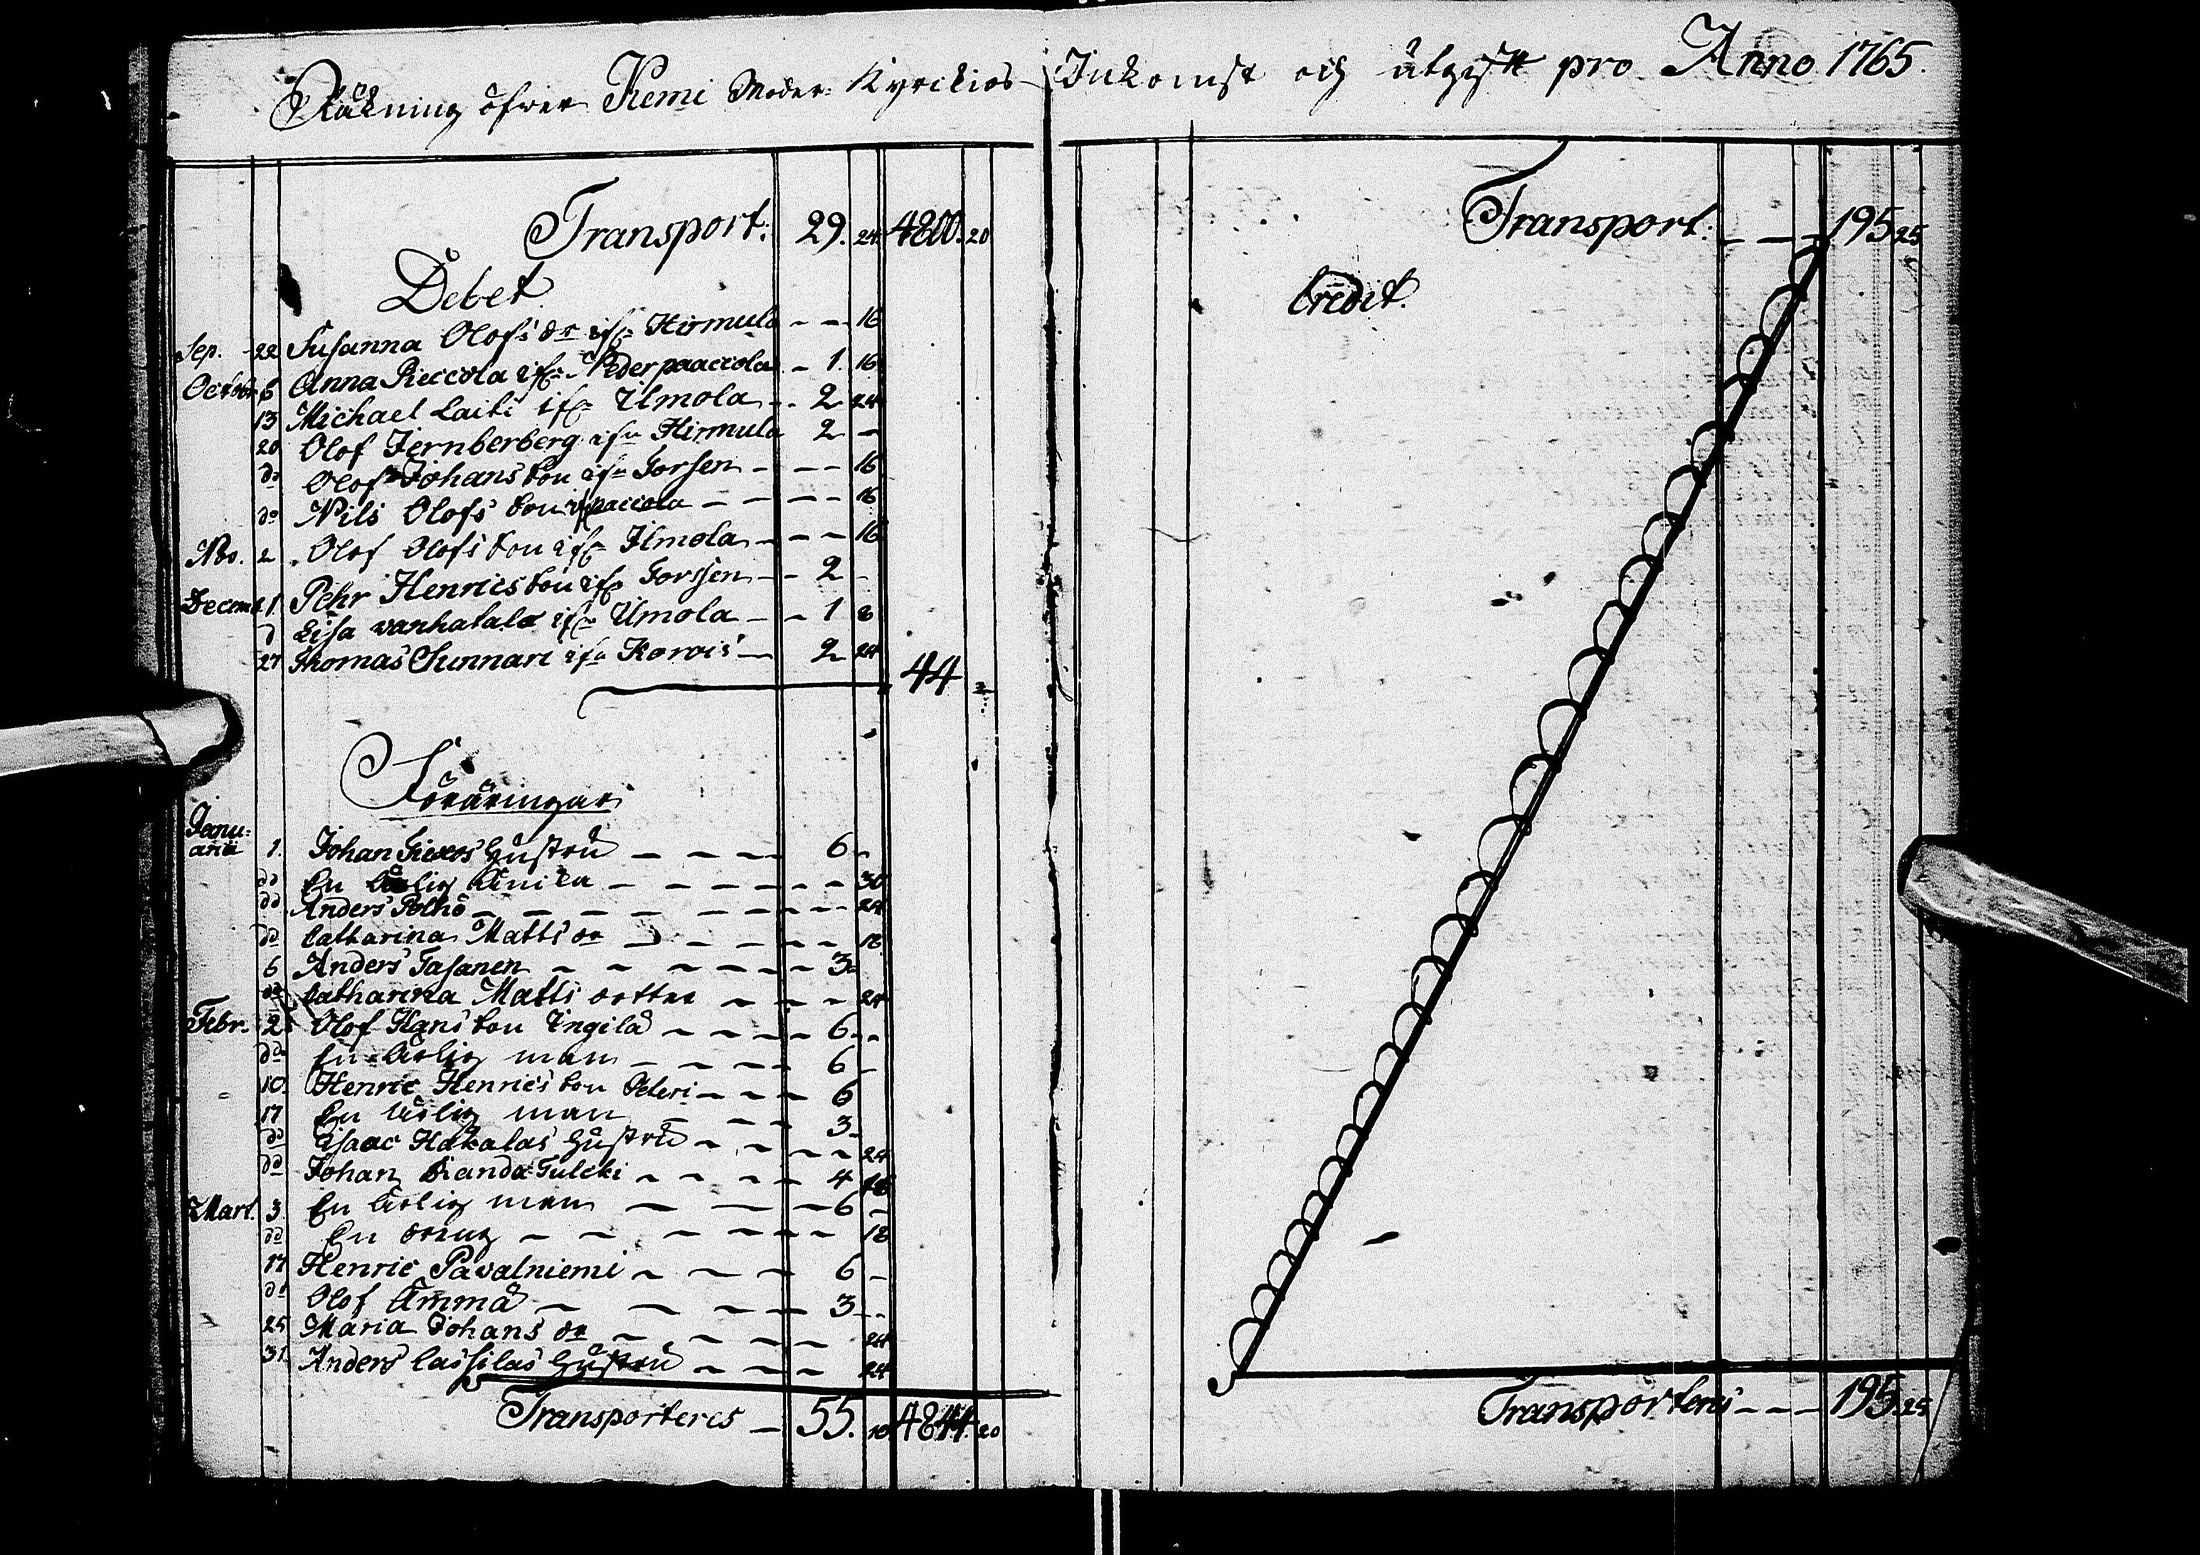 Räkning öfver Kemi Moder Kyrckios Inkomst och utgift pro Anno 1765.
Transport: 29. 24 4800. 20
Debet
Sep. 22 Susanna Olofs dr ifr Hirmula - - 16
October 6 Anna Pieccola ifr Nederpaaccola - 1. 16
13 Michael Laiti ifr Ilmola - - 2 24
20 Olof Jernberberg ifr Hirmula 2 -
do Olof Johans son ifr Gorssen - - - 16
do Nils Olofs son ifr paccola - - - - 16
Nov. 2. Olof Olofs son ifr Ilmola - - - 16
Decemb. 1. Pehr Henrics son ifr Gorssen - - 2 -
d Lisa vanhatalo ifr Ilmola - - 1 8
27 Thomas Sunnari ifr Korvis - 2 24
44
Föräringar
Janu:
arii 1. Johan Hustru - - - 6 -
do En ärlig - - - - - 30
do Anders Polho - - - - - - - 24
do Catharina Matts dr - - - - - 18
6 Anders Tasanen - - - - - - 3 -
do Catharina Matts dotter - - - 24
Febr. 2. Olof Hans son Ingilä - - - - 6 - -
do En ärlig man - - - - 6 -
10. Henric Henrics son Peteri - - - 6
17 En ärlig man - - - 3 -
do Isaac Hakalas Hustru - - - - - 24
do Johan Tulcki - - - - 4 16
Mart. 3. En ärlig man - - - 6 -
do En dräng - - - - - - 18
17 Henric Pavalniemi - - - - 6 -
do Olof Ämmä - - - - - 3 - -
25 Maria Johans dr - - - - 24
31. Anders Cassilas Hustru - - - 24
Transporteres - 55. 10 4844. 20
Transport: - - - 195 25
Credit.
Transporteres - - - 195. 25